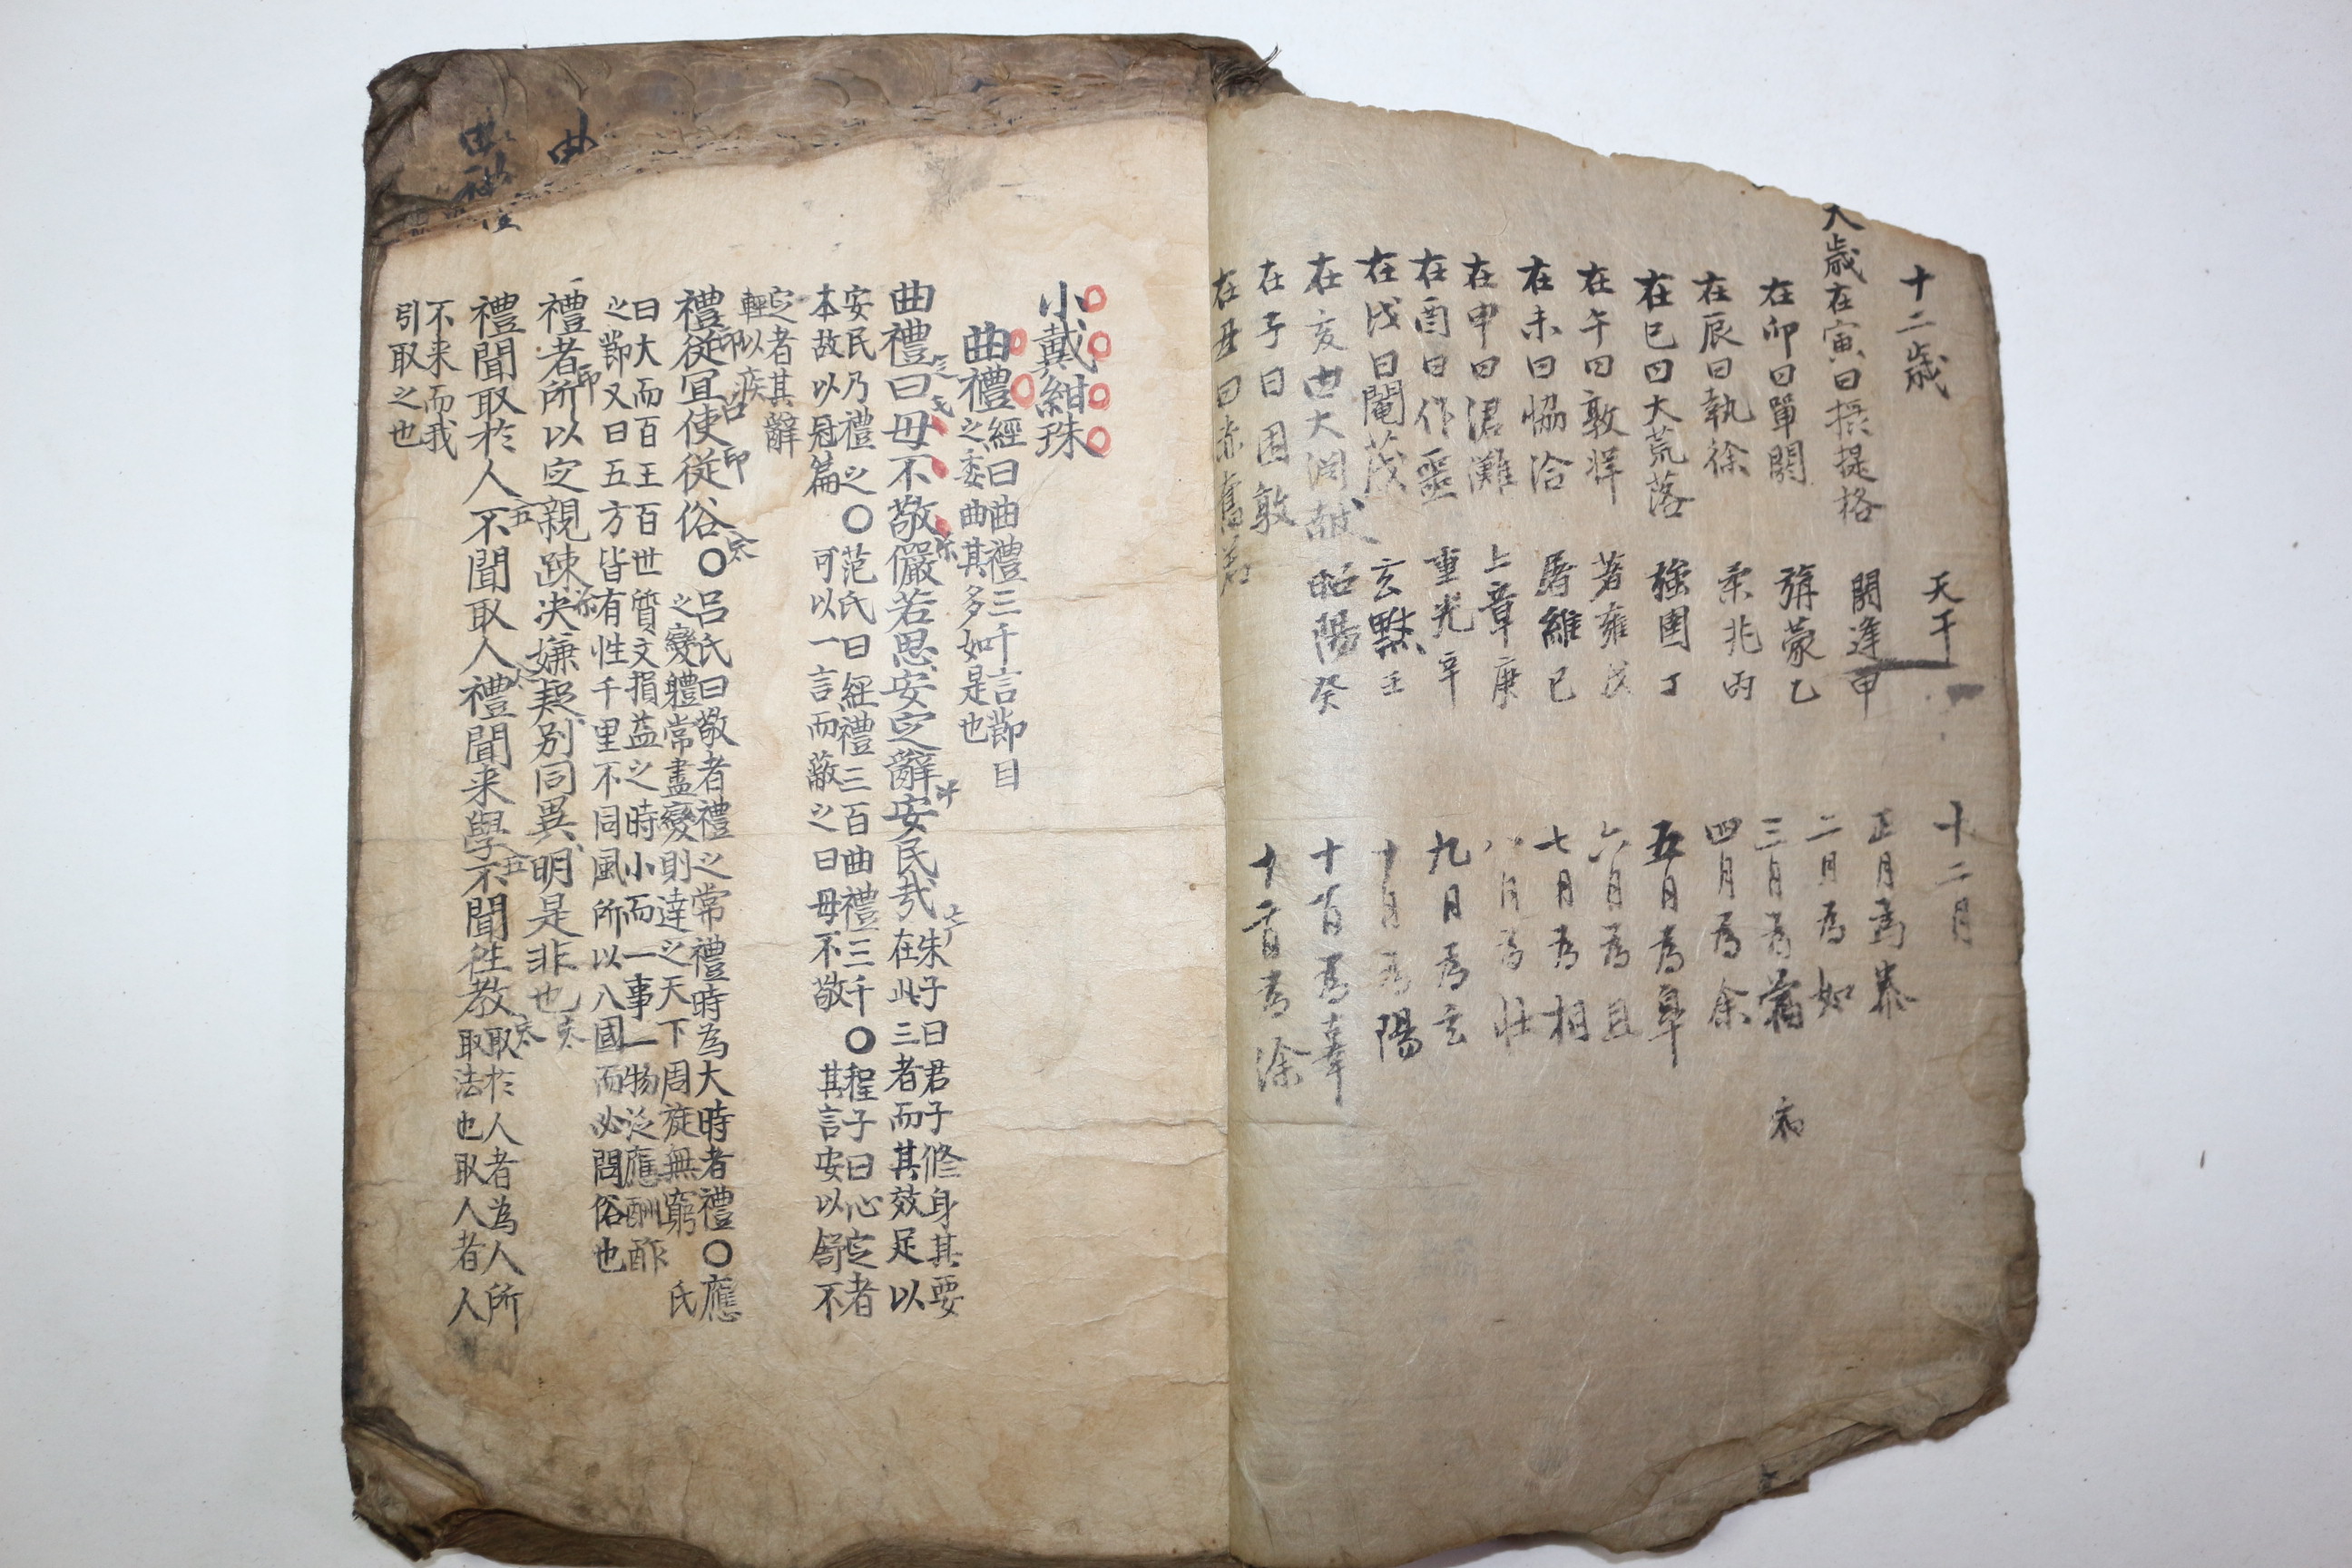 十二歲
大歲在寅曰攝提格
在卯曰單閼
在辰曰執徐
在巳曰大荒落
在午曰敦牂
在未曰協洽
在申曰涒灘
在酉曰作噩
在戌曰閹茂
在亥曰大淵献
在子曰困敦
在丑曰赤奮若
天干
閼逢甲
旃蒙乙
柔兆丙
強圉丁
著雍戊
屠維己
上章庚
重光辛
玄黓壬
昭陽癸
十二月
正月為泰
二月為如
三月為
四月為余
五月為皐
六月為且
七月為相
八月為壯
九月為玄
十月為陽
十一月為辜
十二月為涂
小戴紺珠
曲禮
經曰曲禮三千言節目
之委曲其多如是也
曲禮曰毋不敬儼若思安定辭安民哉
朱子曰君子修身其要
在此三者而其效足以
安民乃禮之○范氏曰經禮三百曲禮三千○程子曰心定者
本故以冠篇 可以一言而蔽之曰毋不敬 其言安以舒不
定者其辭
輕以疾
禮從宜使從俗○
呂氏曰敬者禮之常禮時為大時者禮○應
之變體常盡變則達之天下周旋無窮 氏
曰大而百王百世質文損益之時小而一事一物泛應酬酢
之節又曰五方皆有性千里不同風所以入國而必問俗也
禮者所以定親疎決嫌疑別同異明是非也
禮聞取於人不聞取人禮聞来學不聞往教
取於人者為人所
取法也取人者人
不来而我
引取之也
曲